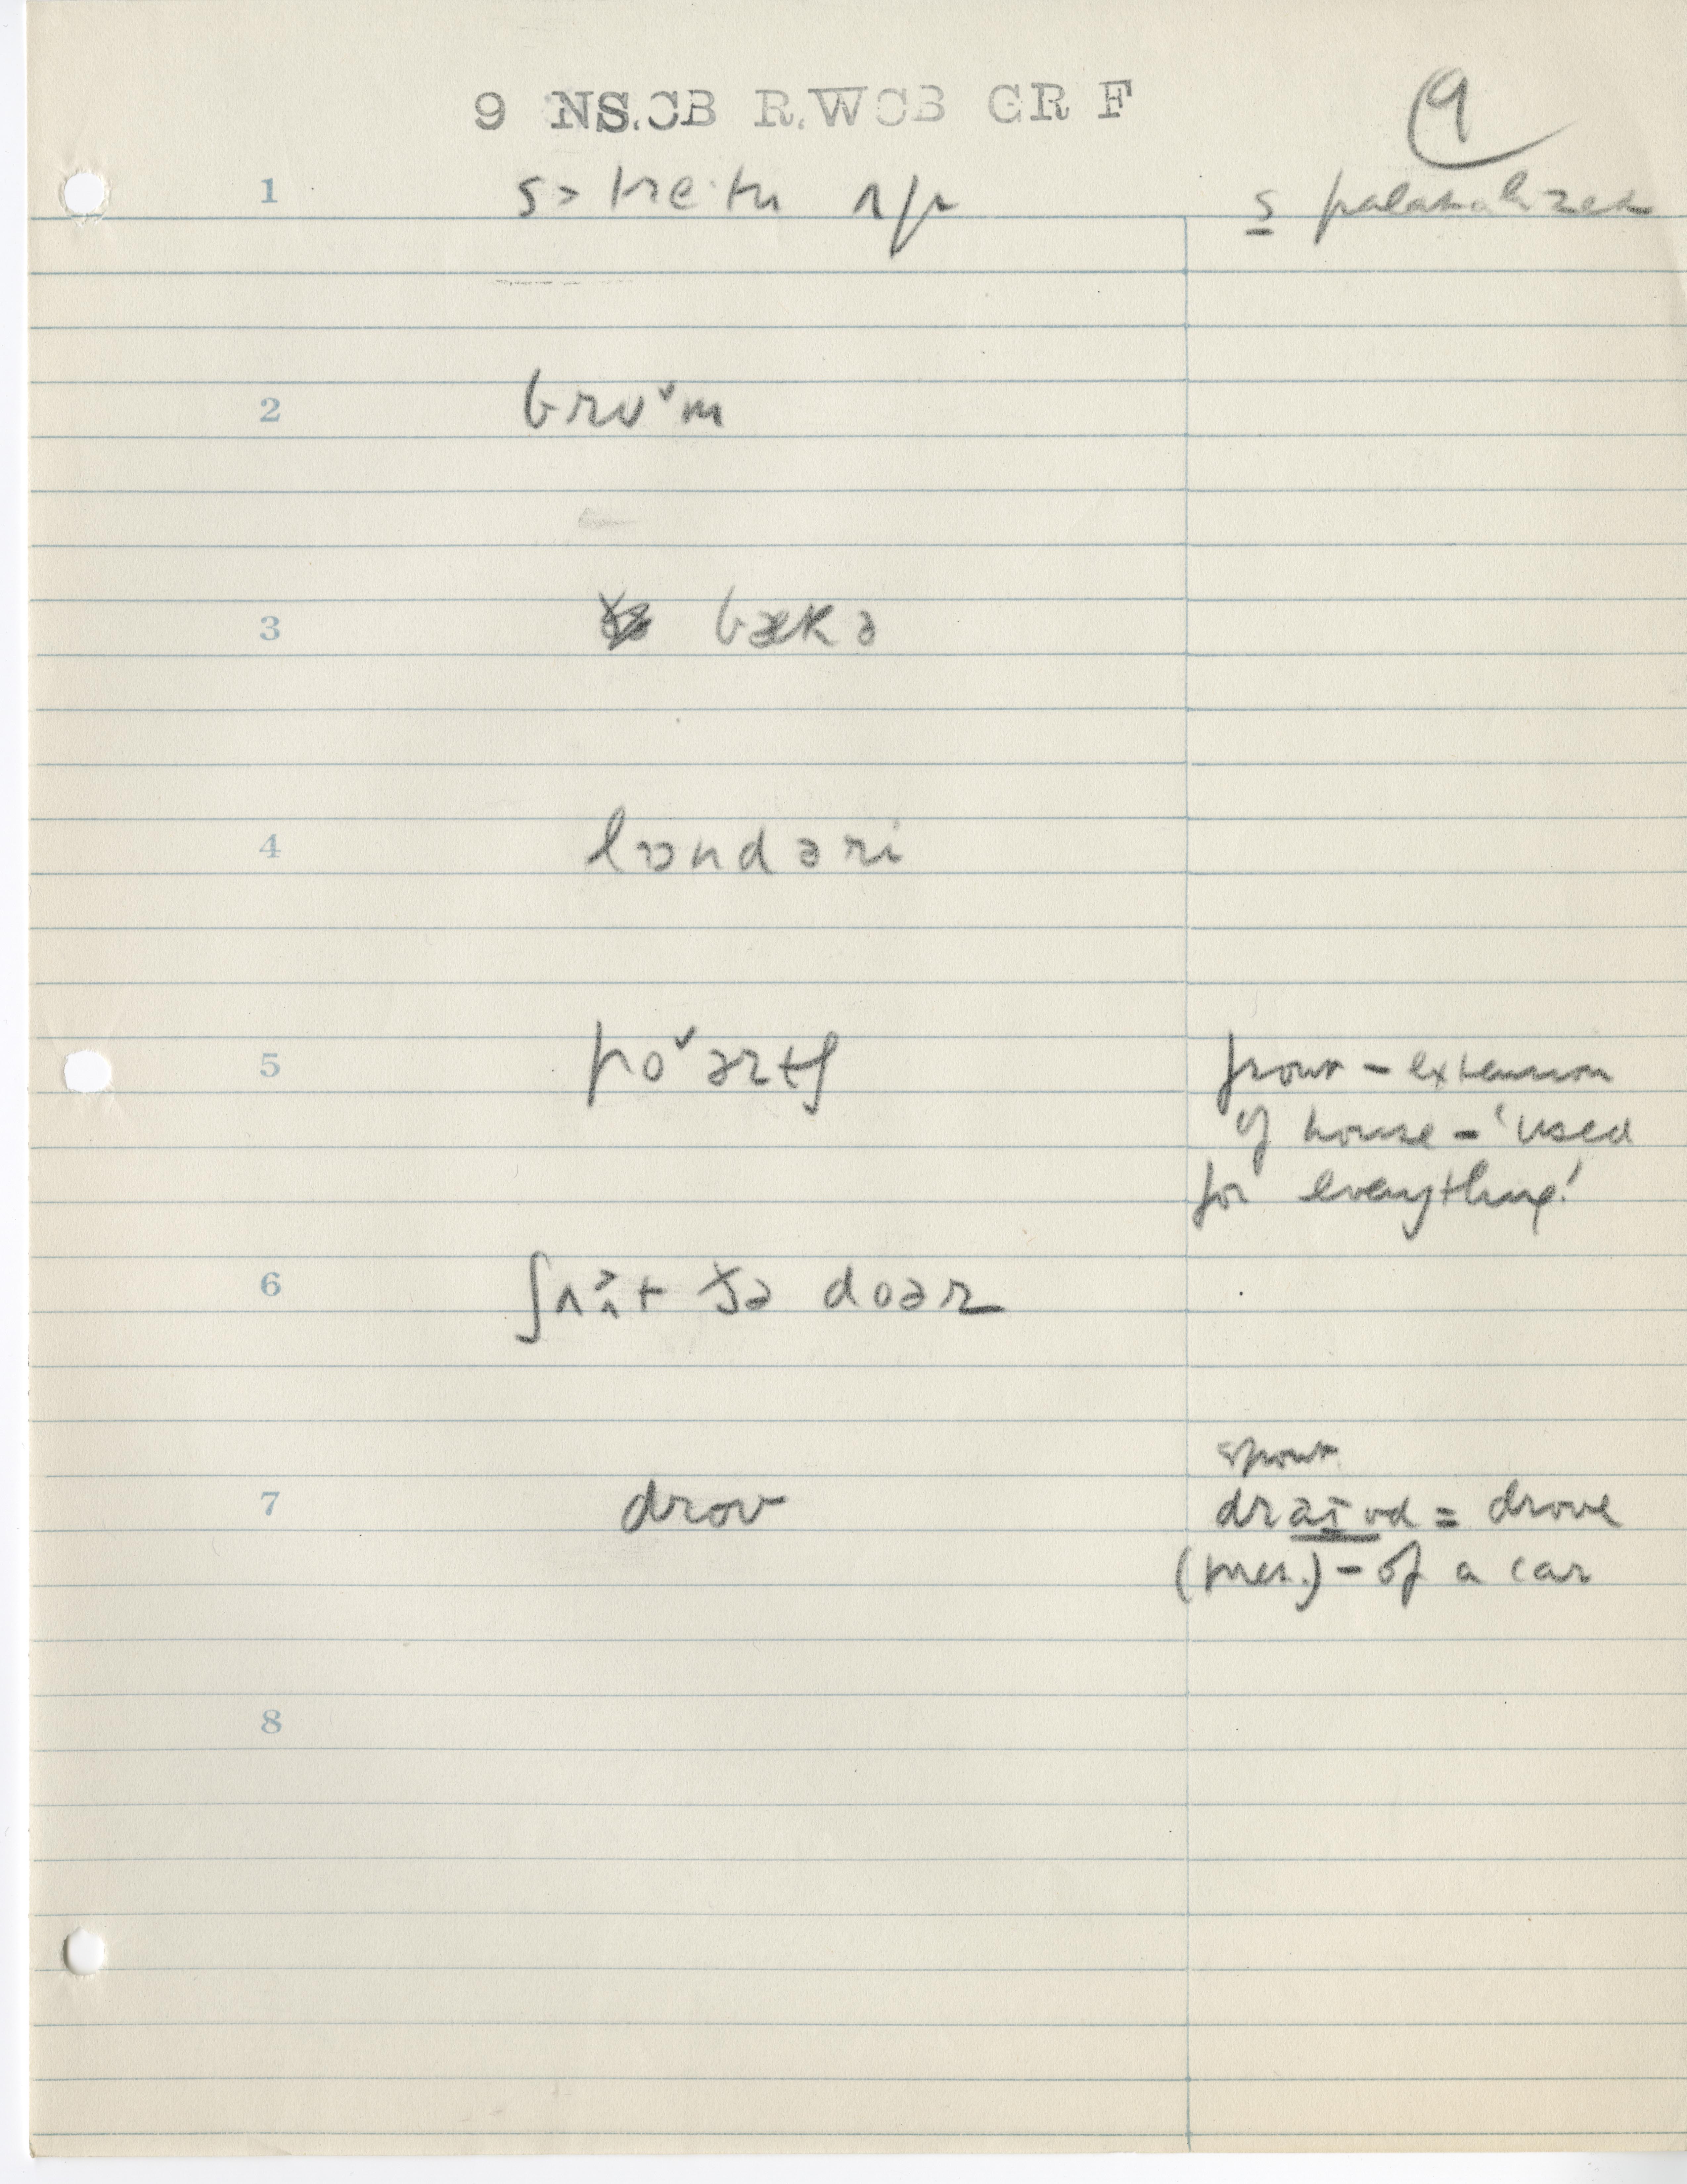 9 NS.CB R.WCB GR F
9
1 s> treitn ʌp s̲ palatalized
2 brʊˇm
3 bækə
4 lɔndəri
5 poˇərtʃ front – extension
of house – 'used
for everything'
6 ʃʌt ðə doər
spont.
7 drov draɪvd = drove
(pres.) – of a car
8